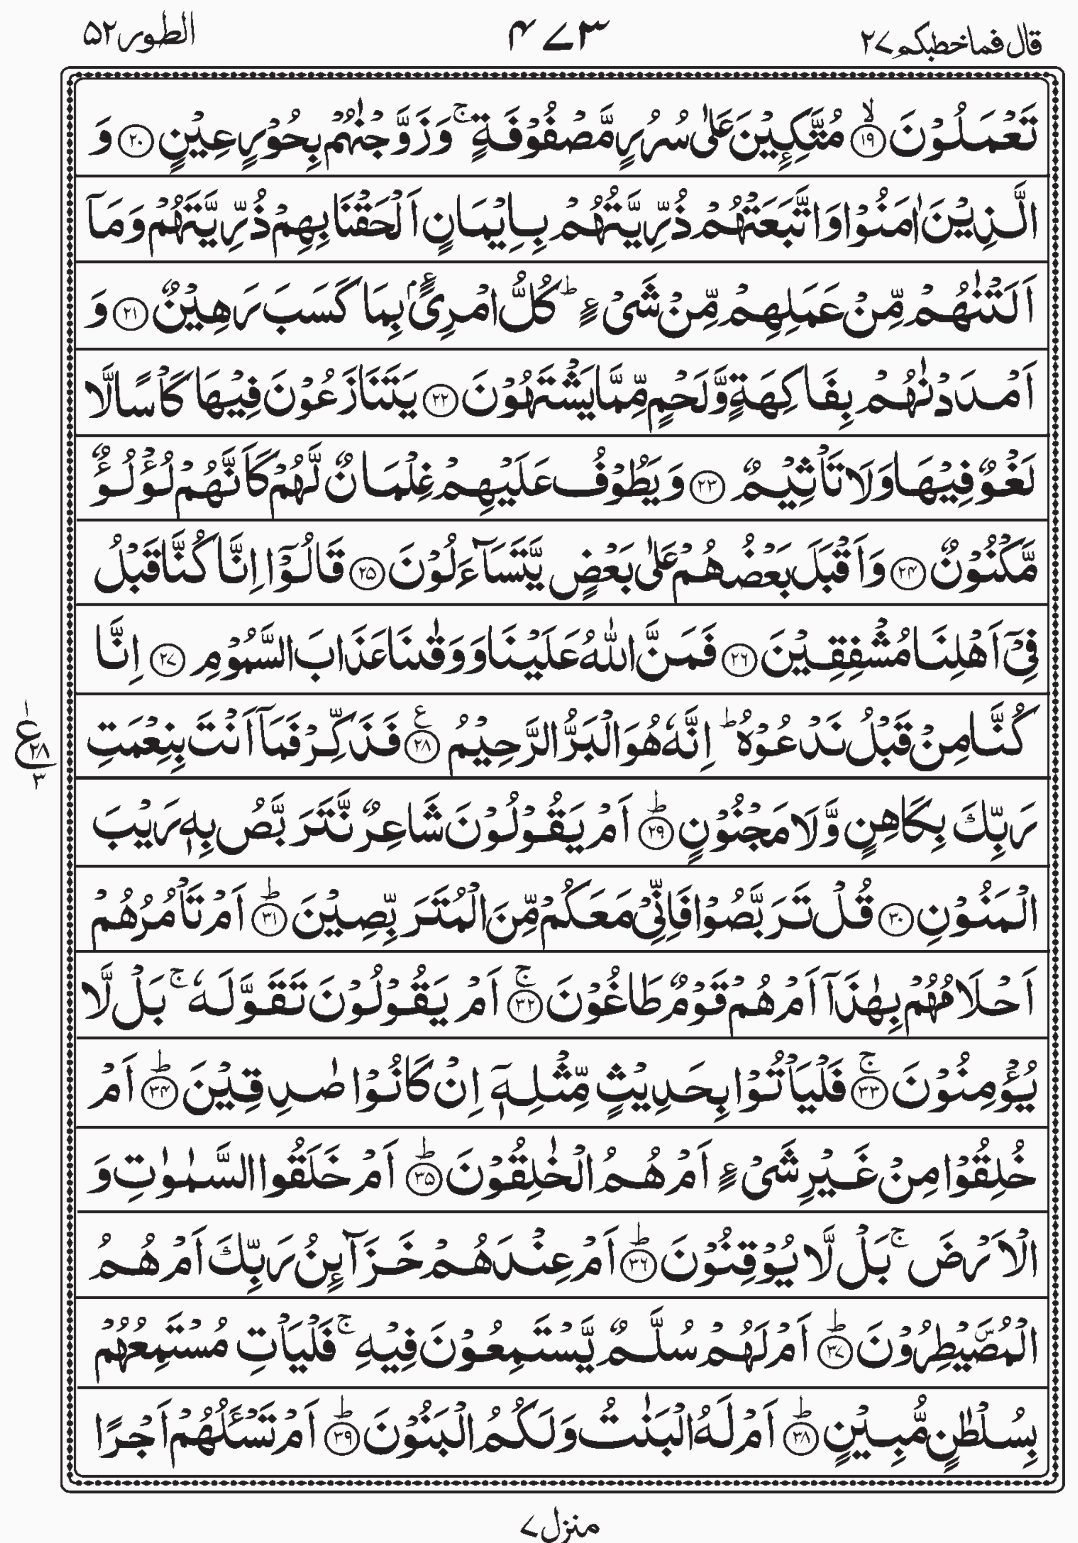 قال فماخطبکم ٢٧
٤٧٣
الطور ٥٢
تَعْمَلُوْنَ ۙ‏﴿۱۹﴾ مُتَّكِـِٕيْنَ عَلٰى سُرُرٍ مَّصْفُوْفَةٍ ۚ وَزَوَّجْنٰهُمْ بِحُوْرٍ عِيْنٍ ﴿۲۰﴾ وَ
الَّذِيْنَ اٰمَنُوْا وَاتَّبَعَتْهُمْ ذُرِّيَّتُهُمْ بِاِيْمَانٍ اَلْحَقْنَا بِهِمْ ذُرِّيَّتَهُمْ وَمَاۤ
اَلَتْنٰهُمْ مِّنْ عَمَلِهِمْ مِّنْ شَىْءٍ ؕ كُلُّ امْرِیًٴۢ بِمَا كَسَبَ رَهِيْنٌ ﴿۲۱﴾ وَ
اَمْدَدْنٰهُمْ بِفَاكِهَةٍ وَّلَحْمٍ مِّمَّا يَشْتَهُوْنَ ﴿۲۲﴾ يَتَنَازَعُوْنَ فِيْهَا كَاْسًا لَّا
لَغْوٌ فِيْهَا وَلَا تَاْثِيْمٌ ﴿۲۳﴾ وَيَطُوْفُ عَلَيْهِمْ غِلْمَانٌ لَّهُمْ كَاَنَّهُمْ لُؤْلُؤٌ
مَّكْنُوْنٌ ﴿۲۴﴾ وَاَقْبَلَ بَعْضُهُمْ عَلٰى بَعْضٍ يَّتَسَآءَلُوْنَ ﴿۲۵﴾ قَالُوْۤا اِنَّا كُنَّا قَبْلُ
فِىْۤ اَهْلِنَا مُشْفِقِيْنَ ﴿۲۶﴾ فَمَنَّ اللّٰهُ عَلَيْنَا وَوَقٰٮنَا عَذَابَ السَّمُوْمِ ﴿۲۷﴾ اِنَّا
كُنَّا مِنْ قَبْلُ نَدْعُوْهُ ؕ اِنَّهٗ هُوَ الْبَرُّ الرَّحِيْمُ ﴿۲۸﴾ۧ فَذَكِّرْ فَمَاۤ اَنْتَ بِنِعْمَتِ
ع ٢٨ ١ ٣
رَبِّكَ بِكَاهِنٍ وَّلَا مَجْنُوْنٍ ؕ﴿۲۹﴾ اَمْ يَقُوْلُوْنَ شَاعِرٌ نَّتَرَبَّصُ بِهٖ رَيْبَ
الْمَنُوْنِ ﴿۳۰﴾ قُلْ تَرَبَّصُوْا فَاِنِّىْ مَعَكُمْ مِّنَ الْمُتَرَبِّصِيْنَ ؕ﴿۳۱﴾ اَمْ تَاْمُرُهُمْ
اَحْلَامُهُمْ بِهٰذَاۤ اَمْ هُمْ قَوْمٌ طَاغُوْنَ ۚ﴿۳۲﴾ اَمْ يَقُوْلُوْنَ تَقَوَّلَهٗ ۚ بَلْ لَّا
يُؤْمِنُوْنَ ۚ﴿۳۳﴾ فَلْيَاْتُوْا بِحَدِيْثٍ مِّثْلِهٖۤ اِنْ كَانُوْا صٰدِقِيْنَ ؕ﴿۳۴﴾ اَمْ
خُلِقُوْا مِنْ غَيْرِ شَىْءٍ اَمْ هُمُ الْخٰلِقُوْنَ ؕ﴿۳۵﴾ اَمْ خَلَقُوا السَّمٰوٰتِ وَ
الْاَرْضَ ۚ بَلْ لَّا يُوْقِنُوْنَ ؕ﴿۳۶﴾ اَمْ عِنْدَهُمْ خَزَآئِنُ رَبِّكَ اَمْ هُمُ
الْمُصَۜيْطِرُوْنَ ؕ﴿۳۷﴾ اَمْ لَهُمْ سُلَّمٌ يَّسْتَمِعُوْنَ فِيْهِ ۚ فَلْيَاْتِ مُسْتَمِعُهُمْ
بِسُلْطٰنٍ مُّبِيْنٍ ؕ﴿۳۸﴾ اَمْ لَهُ الْبَنٰتُ وَلَكُمُ الْبَنُوْنَ ؕ﴿۳۹﴾ اَمْ تَسْـَٔلُهُمْ اَجْرًا
منزل ٧